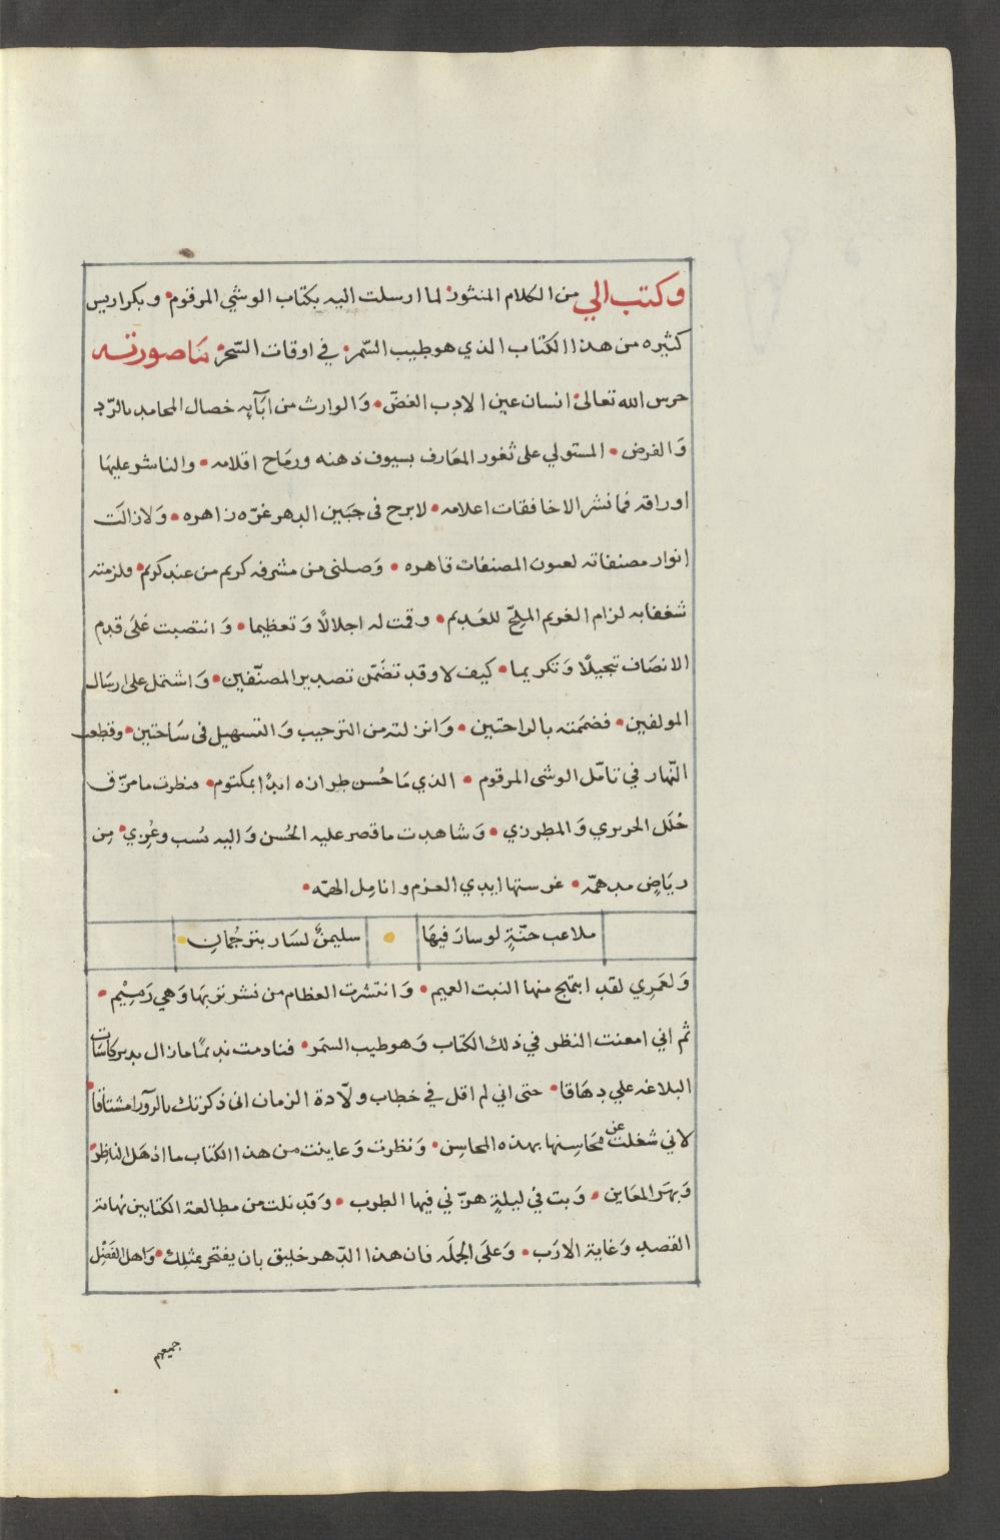 وكتب الي من الكلام المنثور لما ارسلت اليه بكتاب الوشي المرقوم وبكراريس
كثيره من هذا الكتاب الذي هو طيب السّمر في اوقات السّحر مَا صورته
حرس الله تعالى انسان عين الادب الغضّ وَالوارث من ابَآيه خصال المحامد بالرّد
وَالفرض المستولي على ثغور المعَارف بسيوف ذهنه ورمَاح اقلامه والناشر عليهَا
اوراقه فما نشر الا خافقات اعلامه لا برح فى جبَين الدهر غرّه زاهره وَلا زالت
انوار مصنفاته لعيون المصنفات قاهره وَصلنى من مشرفه كريم من عند كريم فلزمته
شغفا به لزام الغريم الملحّ للعَديم وقمت له اجلالًا وَتعظيما وَانتصبت عَلى قدم
الانصَاف تبجيلًا وَتكريما كيف لا وقد تضَمّن تصدير المصنّفين وَاشتمل على ارسَال
المولفين فضمَمته بالراحتين وَانزلته من الترحيب وَالتسهيل فى سَاحتين وقطعت
النّهار في تامّل الوشى المرقوم الذي مَا حُسن طرازه ابدًا بمكتوم فنظرت ما مزّق
حُلَل الحريري وَالمطرزي وَشاهدت ما قصر عليه الحُسن وَاليه نُسب وعُزي مِن
ريَاضٍ مدهمّة غرستها ايدي العزم وانامِل الهمّه
ملاعب جنّةٍ لو سارَ فيهَا سليمنٌ لسَار بترجُمانِ
وَلعَمرِي لقد ابتهج منها النبت العميم وَانتشرت العظام من نشر تربهَا وَهي رَميْم
ثم اني امعنت النظر في ذلك الكتاب وَهو طيب السمَر فنادمت نديمًا ما زال يدير كاسَات
البلاغه علي دهَاقا حتى اني لم اقل في خطاب ولّادة الزمان انى ذكرتك بالزّهرآ مشتاقا
لاني شغلت عن محَاسِنها بهذه المحاسِن وَنظرت وَعاينت من هذا الكتاب ما اذهَل الناظر
وَبهَر المعَاين وَبت في ليلةٍ هزّني فيها الطرب وَقد نلت من مطالعة الكتابين نهاية
القصد وَغاية الارَب وَعلَى الجملَه فان هذا الدّهر خليق بان يفتخر بمثلك وَاهل الفَضْل
جميعهم